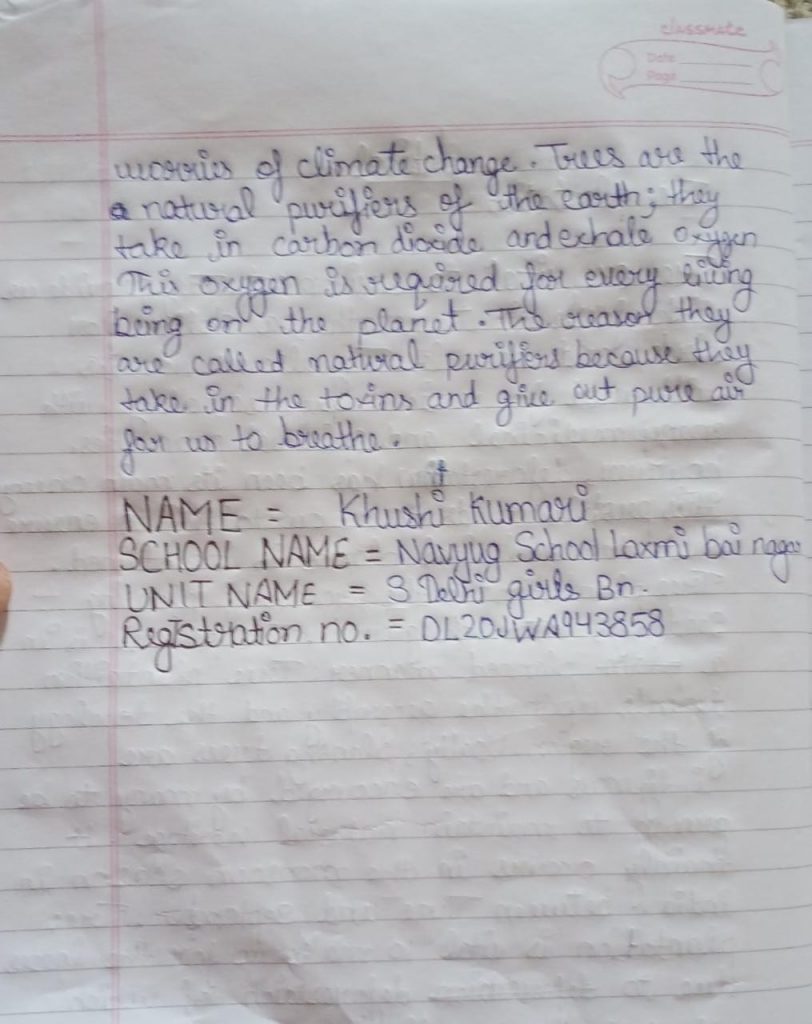 classmate
Date
Page
worries of climate change. Trees are the
natural purifiers of the earth; they
take in carbon dioxide and exhale oxygen
This oxygen is required for every living
being on the planet. The reason they
are called natural purifiers because they
take in the toxins and give out pure air
for us to breathe.
NAME = Khushi Kumari
SCHOOL NAME = Navyug School Laxmi bai nagar
UNIT NAME = 3 Delhi girls Bn.
Registration no. = DL20JWA943858